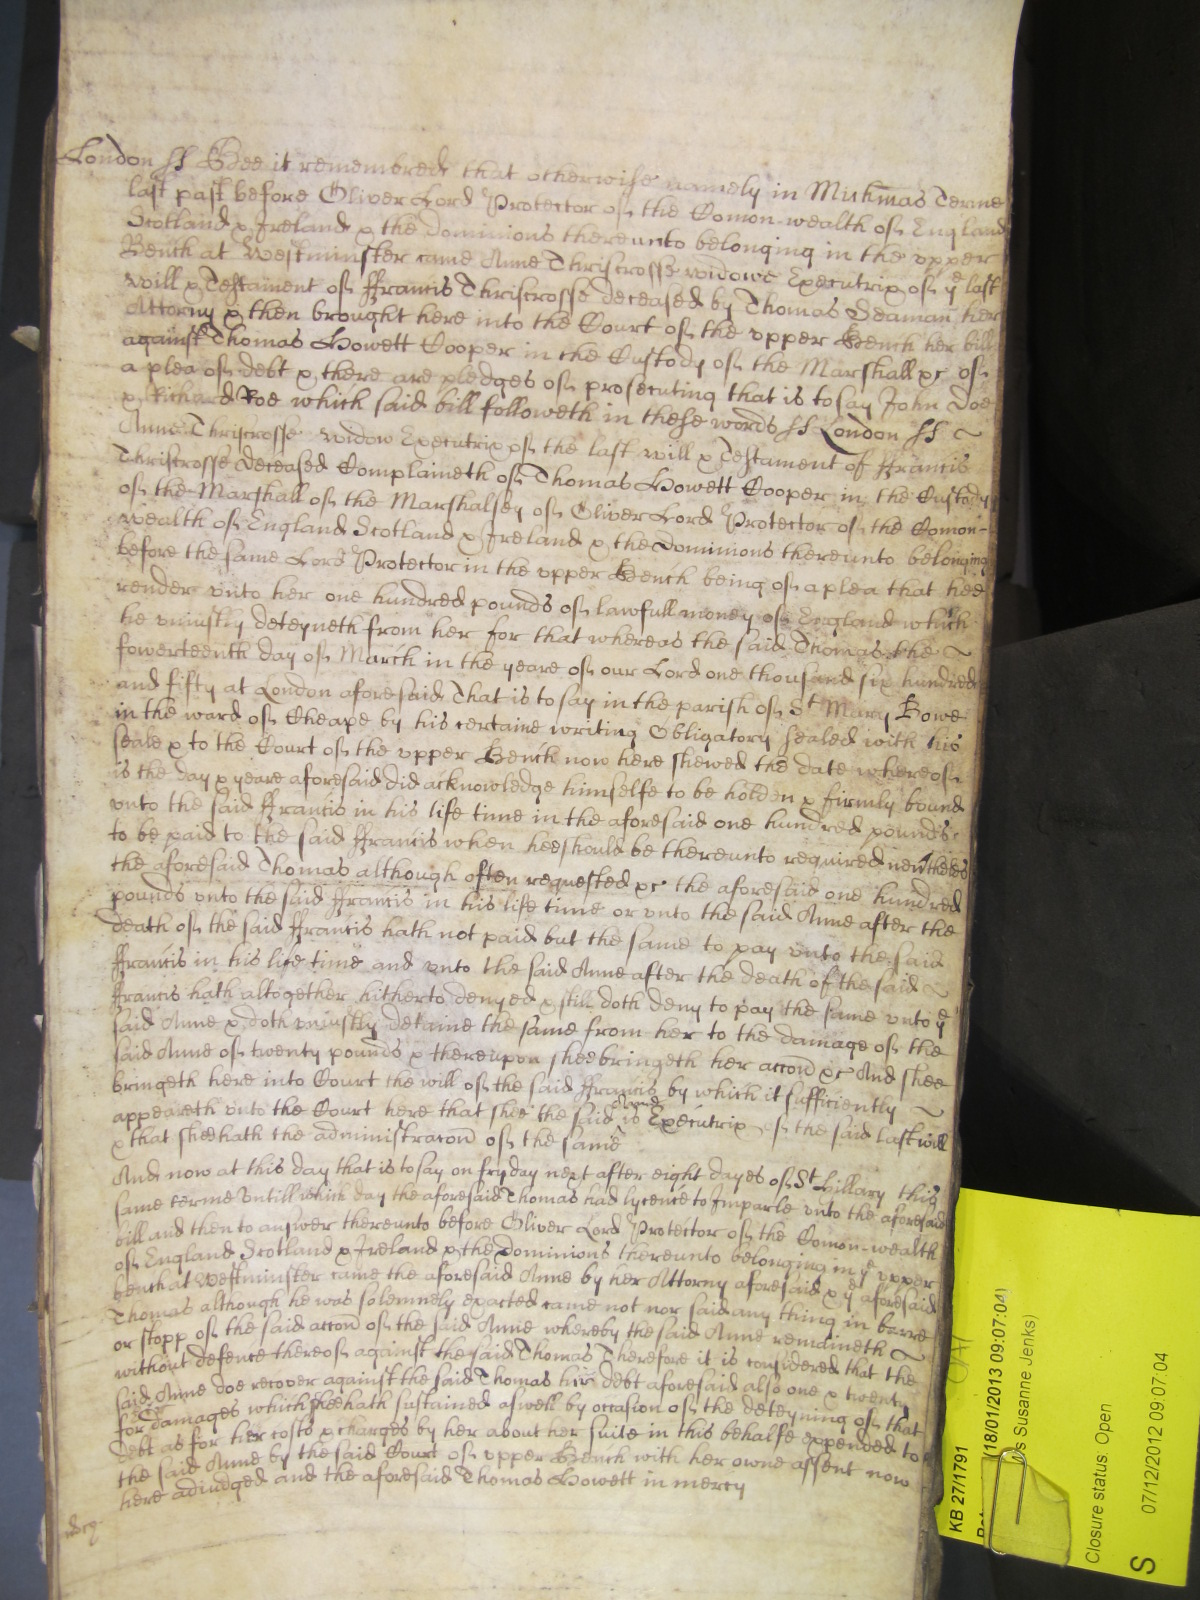 London ss Bee it remembred that otherwise namely in Mickmas Terme
last past before Oliver Lord Protector of the Comon-wealth of England
Scotland & Ireland & the dominions thereunto belonging in the upper
Bench at Westminster came Anne Thriscrosse widowe Executrix of ye last
will & Testament of ffrancis Thriscrosse deceased by Thomas Seaman her
Attorny & then brought here into the Court of the upper Bench her bill
against Thomas Howett Cooper in the Custody of the Marshall &c of
a plea of debt & there are pledges of prosecuting that is to say John Doe
& Richard Roe which said bill followeth in these words ss London ss
Anne Thriscrosse widow Executrix of the last will & Testament of ffrancis
Thriscrosse deceased Complaineth of Thomas Howett Cooper in the Custody
of the Marshall of the Marshalsey of Oliver Lord Protector of the Comon-
wealth of England Scotland & Ireland & the Dominions thereunto belonging
before the same Lord Protector in the upper Bench being of a plea that hee
render unto her one hundred pounds of lawfull money of England which
he uniustly deteyneth from her for that whereas the said Thomas the
fowerteenth day of March in the yeare of our Lord one thousand six hundred
and fifty at London aforesaid That is to say in the parish of St Mary Bowe
in the ward of Cheape by his certaine writing Obligatory sealed with his
seale & to the Court of the upper Bench now here shewed the date whereof
is the day & yeare aforesaid did acknowledge himselfe to be holden & firmly bound
unto the said ffrancis in his life time in the aforesaid one hundred pounds
to be paid to the said ffrancis when hee should be thereunto required
the aforesaid Thomas although often requested &c the aforesaid one hundred
pounds unto the said ffrancis in his life time or unto the said Anne after the
death of the said ffrancis hath not paid but the same to pay unto the said
ffrancis in his life time and unto the said Anne after the death of the said
ffrancis hath altogether hitherto denyed & still doth deny to pay the same unto ye
said Anne & doth uniustly detaine the same from her to the damage of the
said Anne of twenty pounds & thereupon shee bringeth her accon &c And shee
bringeth here into Court the will of the said ffrancis by which it sufficiently
appeareth unto the Court here that shee the said Anne is Executrix of the said last will
& that shee hath the administracon of the same
And now at this day that is to say on fryday next after eight dayes of St Hillary this
same terme Untill which day the aforesaid Thomas had lycence to Imparle unto the aforesaid
bill and then to answer thereunto before Oliver Lord Protector of the Comon-wealth
of England Scotland & Ireland & the Dominions thereunto belonging in ye upper
bench at Westminster came the aforesaid Anne by her Attorny aforesaid & ye aforesaid
Thomas although he was solemnely exacted came not nor said any thing in barre
or stopp of the said accon of the said Anne whereby the said Anne remaineth
without defence thereof against the said Thomas Therefore it is considered that the
said Anne doe recover against the said Thomas her debt aforesaid also one & twenty
for damages which shee hath sustained aswell by occasion of the deteyning of that
debt as for her costs & charges by her about her suite in this behalfe expended to
the said Anne by the said Court of upper Bench with her owne assent now
here adiudged and the aforesaid Thomas Howett in mercy
KB 27/1791
(18/01/2013 09:07:04)
s Susanne Jenks)
Closure status: Open
07/12/2012 09:07:04
S